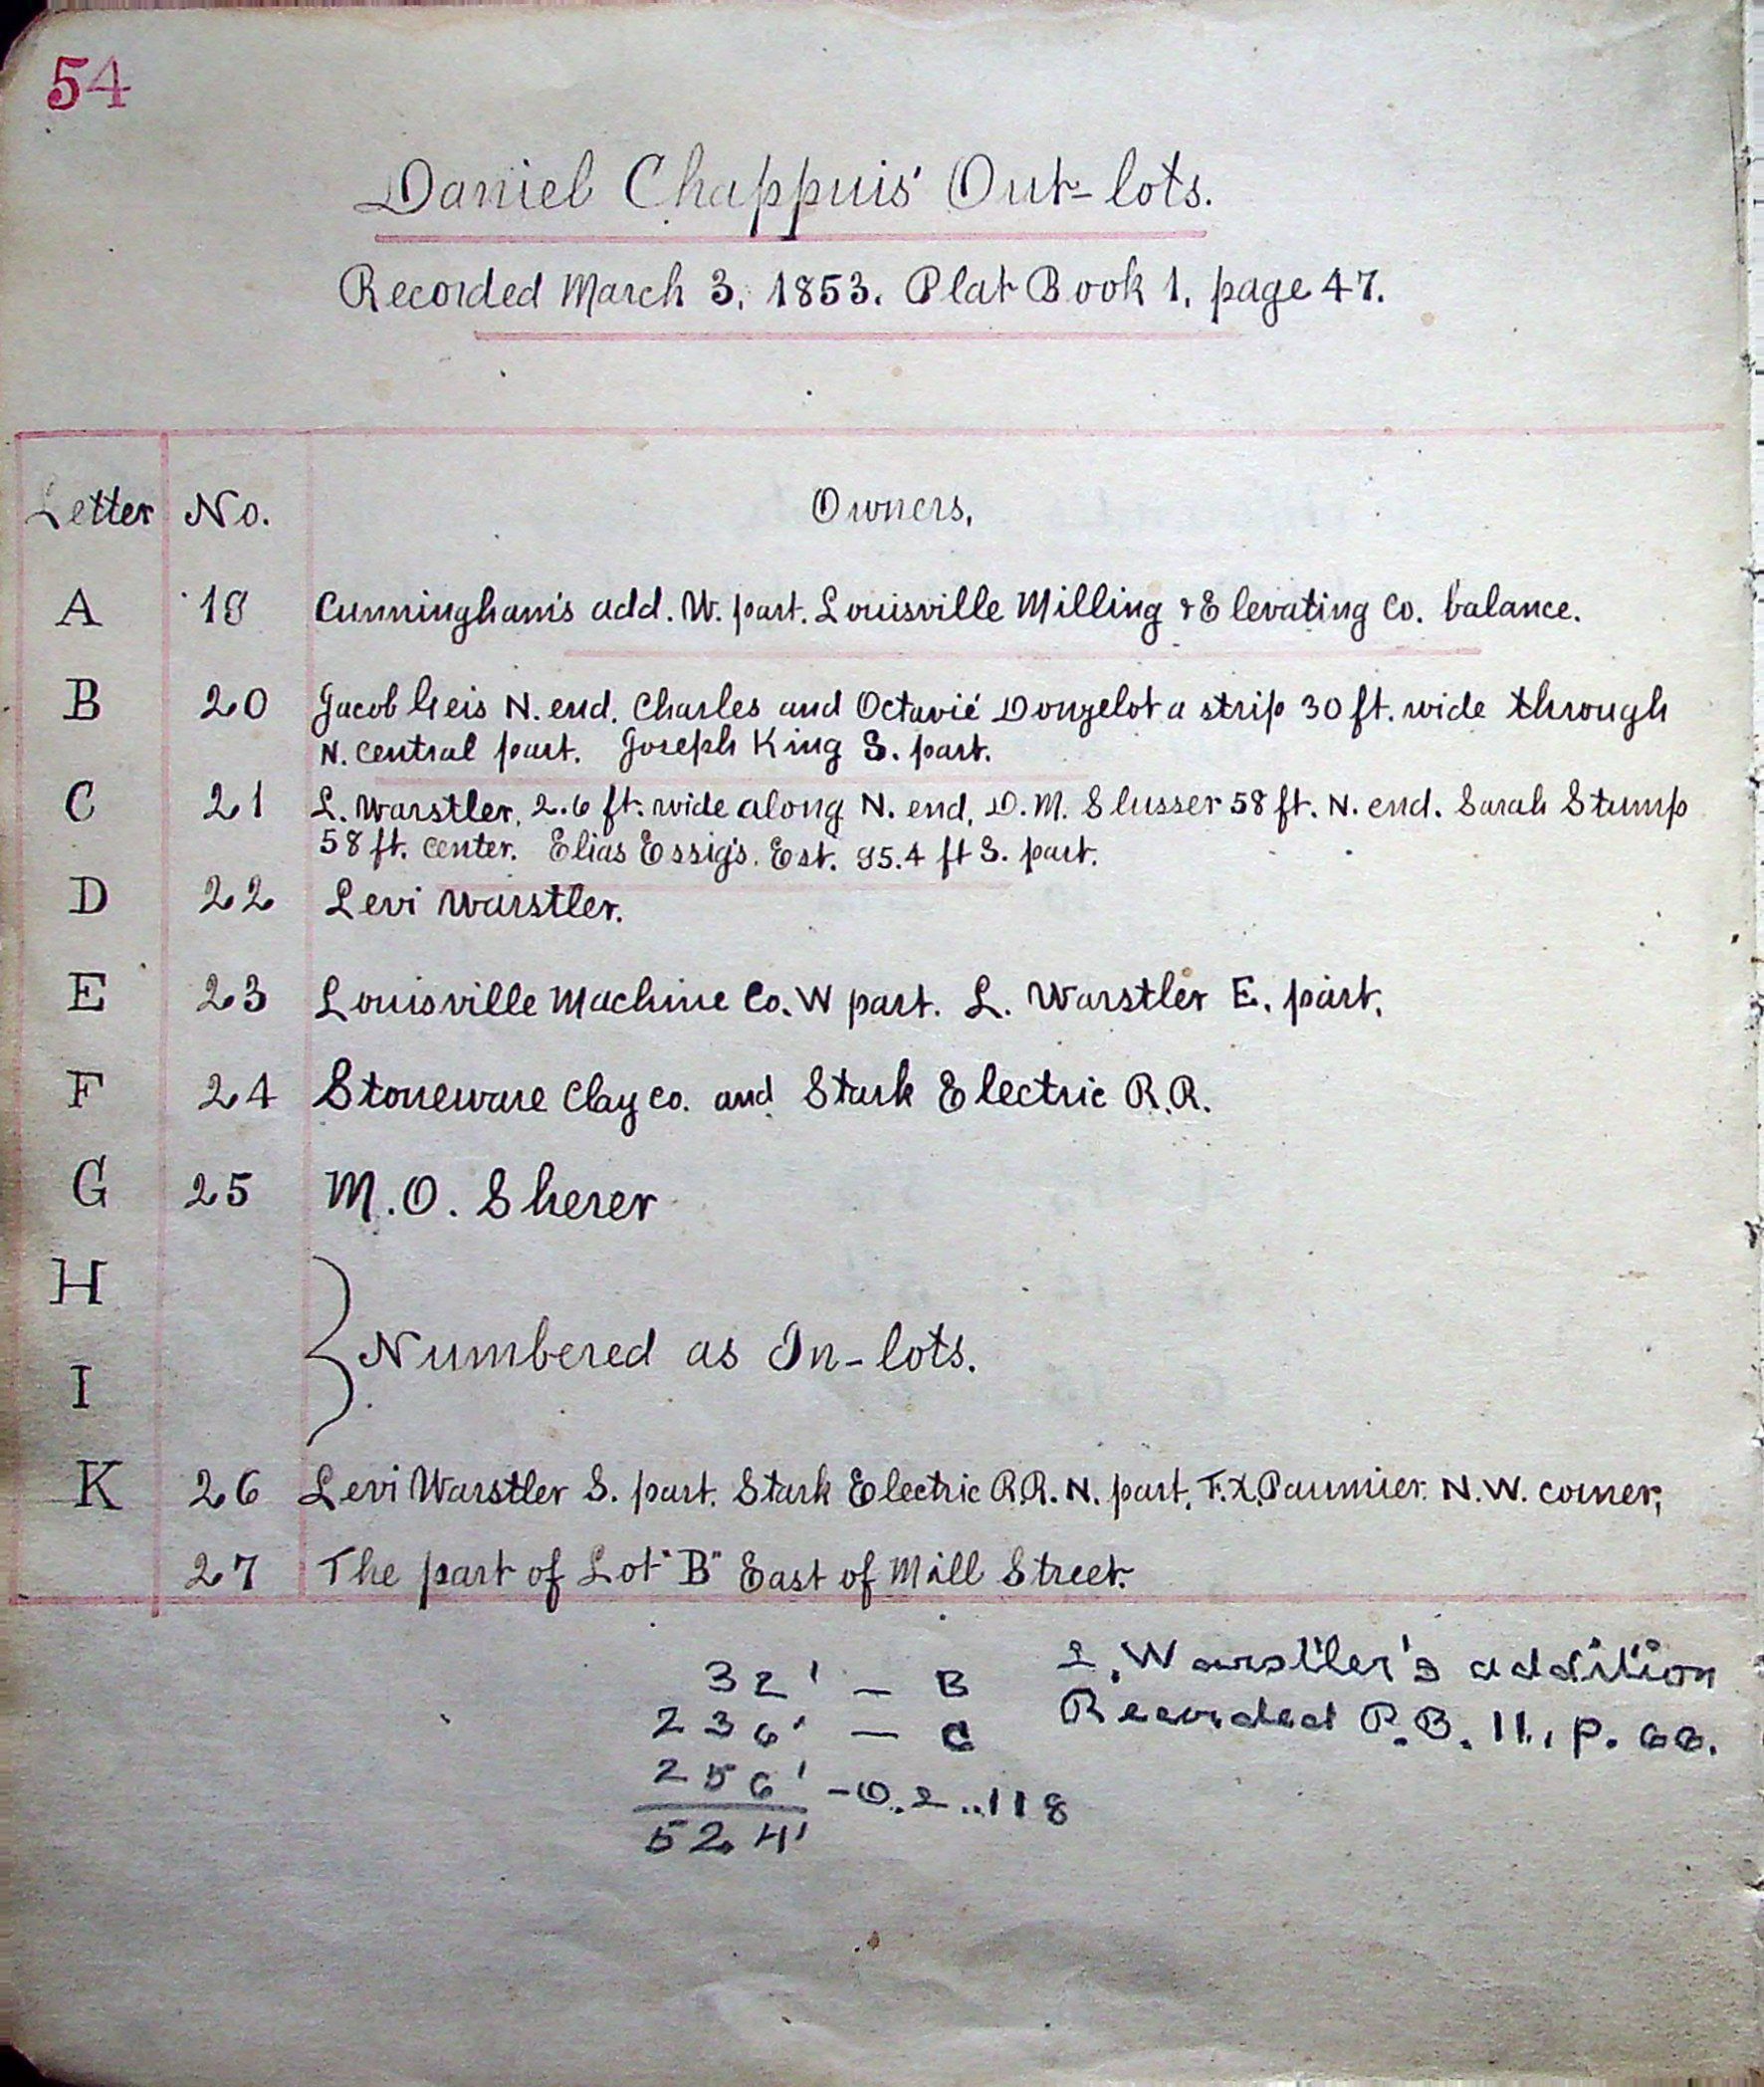 54
Daniel Chappuis' Out-lots.
Recorded March 3, 1853. Plat Book 1, page 47.
Letter No. Owners,
A 19 Cunningham's add. W. part. Louisville Milling & Elevating Co. balance.
B 20 Jacob Geis N. end. Charles and Octavié Donzelot a strip 30 ft. wide through
N. central part. Joseph King S. part.
C 21 L. Warstler, 2.6 ft. wide along N. end, D. M. Slusser 58 ft. N. end. Sarah Stump
58 ft. center. Elias Essig's. Est. 95.4 ft S. part.
D 22 Levi Warstler.
E 23 Louisville Machine Co. W part. L. Warstler E. part.
F 24 Stoneware Clay Co. and Stark Electric R.R.
G 25 M. O. Sherer
H
Numbered as In-lots.
I
K 26 Levi Warstler S. part. Stark Electric R.R. N. part, F. X. Paumier. N. W. corner,
27 The part of Lot "B" East of Mill Street.
32' — B L. Warstler's addition
236' — C Recorded P.B. 11, p. 66.
256' - O. L. 118
524'